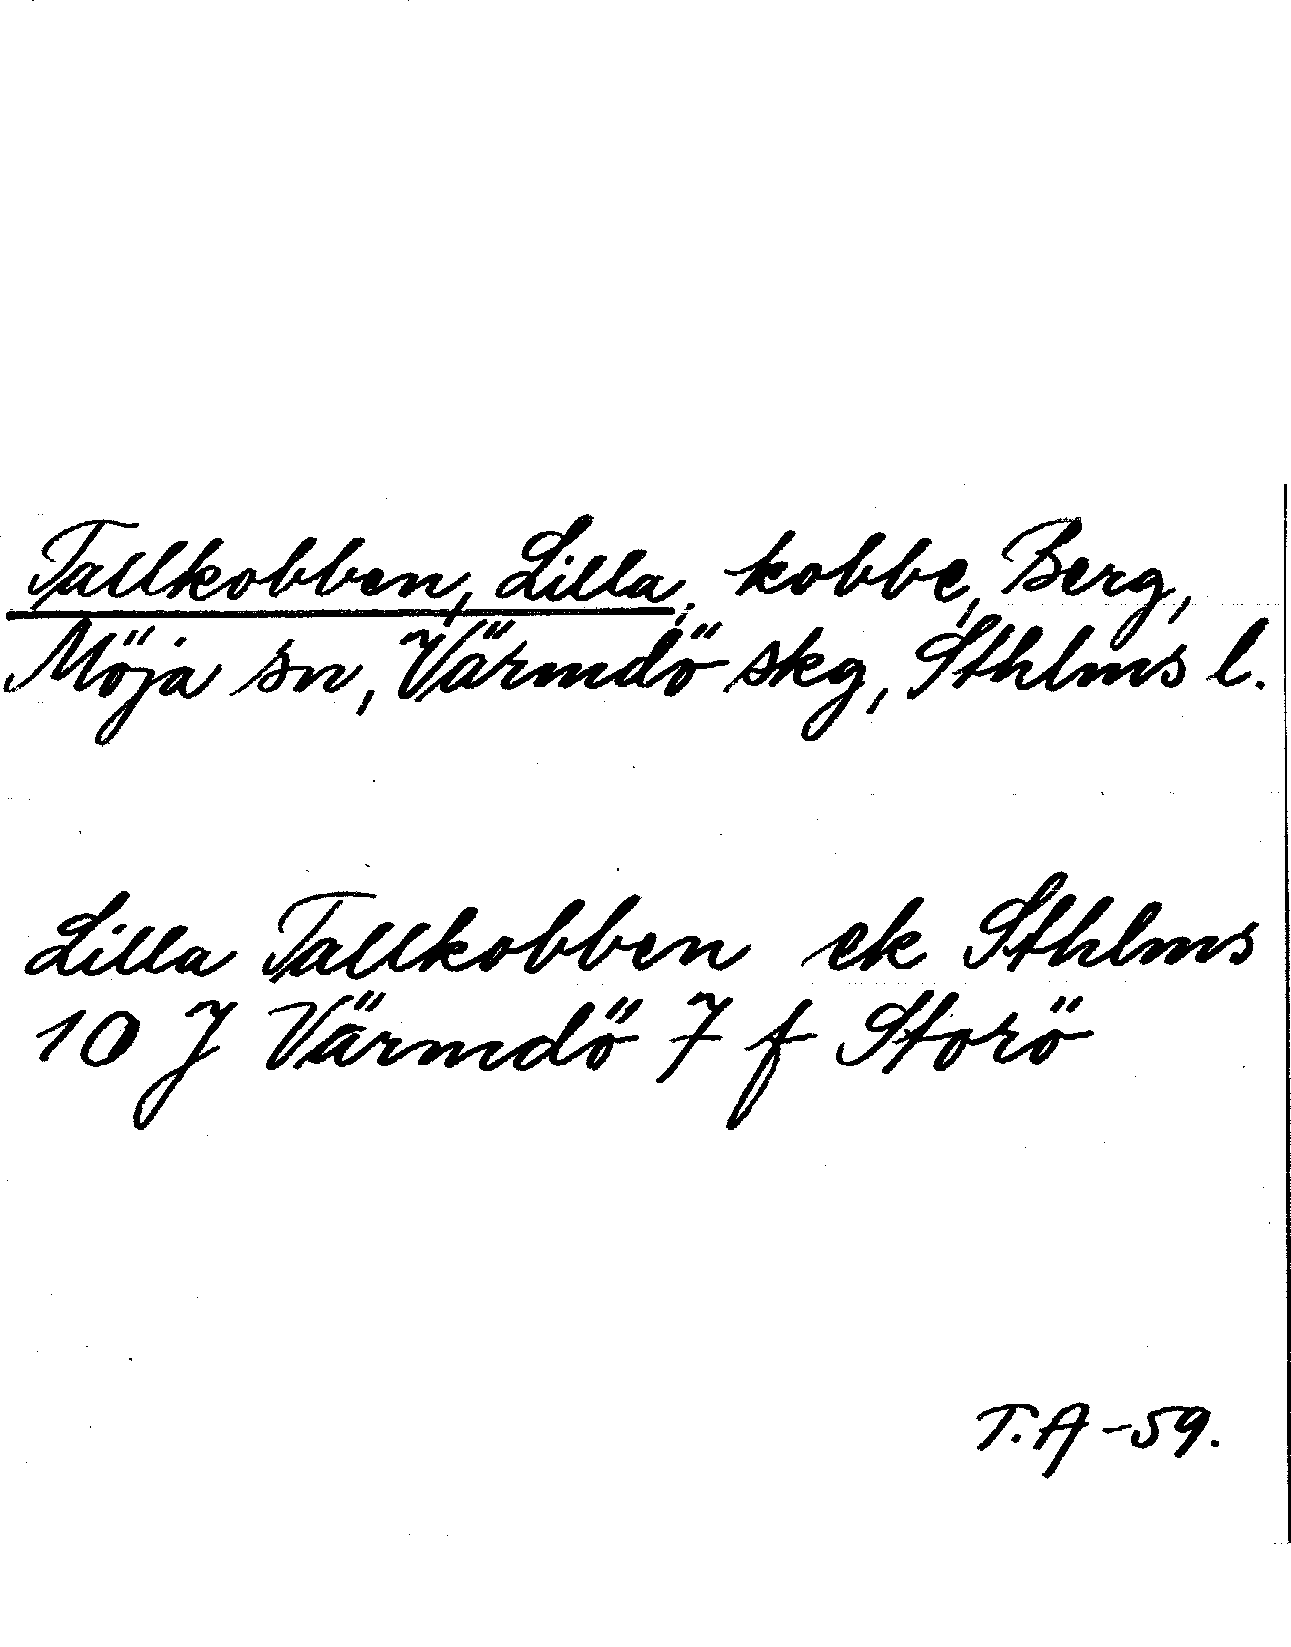 Tallkobben, Lilla, kobbe, Berg,
Möja sn, Värmdö skg, Sthlms l.
Lilla Tallkobben ek Sthlms
10 J Värmdö 7 f Storö
T.A -59.